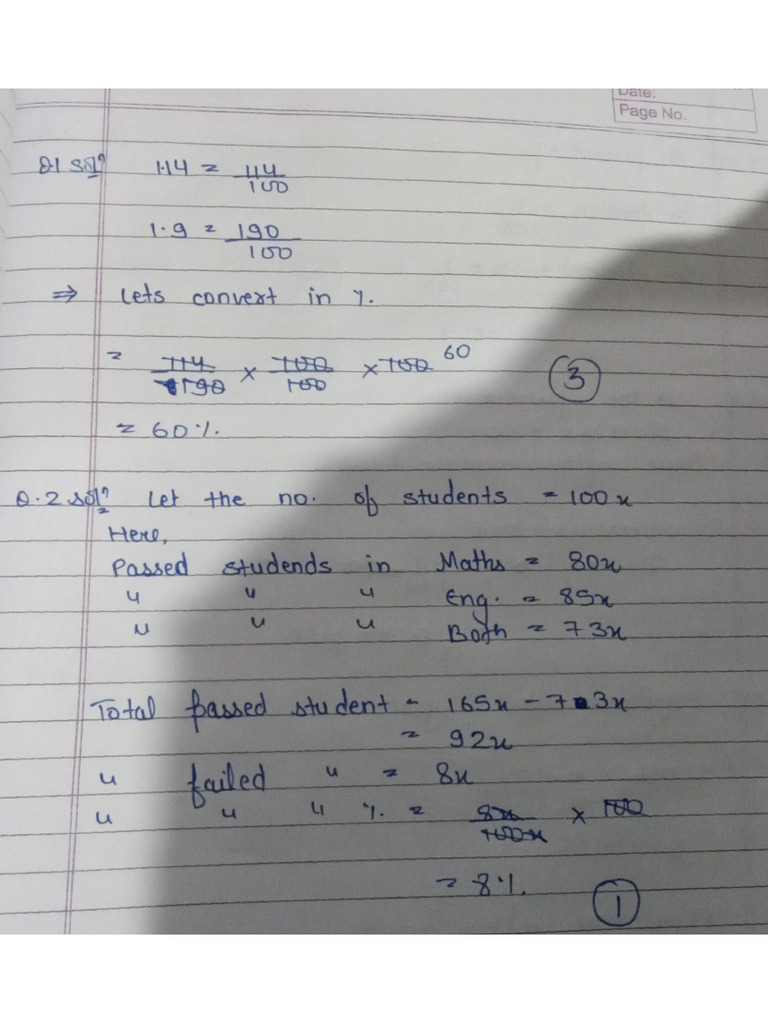 Date:
Page No.
Q.1 Solⁿ 1.14 = 114/100
1.9 = 190/100
⇒ Lets convert in %.
= 114/190 × 100/100 × 100 60
= 60%. (3)
Q.2 Solⁿ Let the no. of students = 100x
Here,
Passed studends in Maths = 80x
〃 〃 〃 Eng. = 85x
〃 〃 〃 Both = 73x
Total passed student = 165x - 73x
= 92x
〃 failed 〃 = 8x
〃 〃 〃 % = 8x/100x × 100
= 8%. (1)